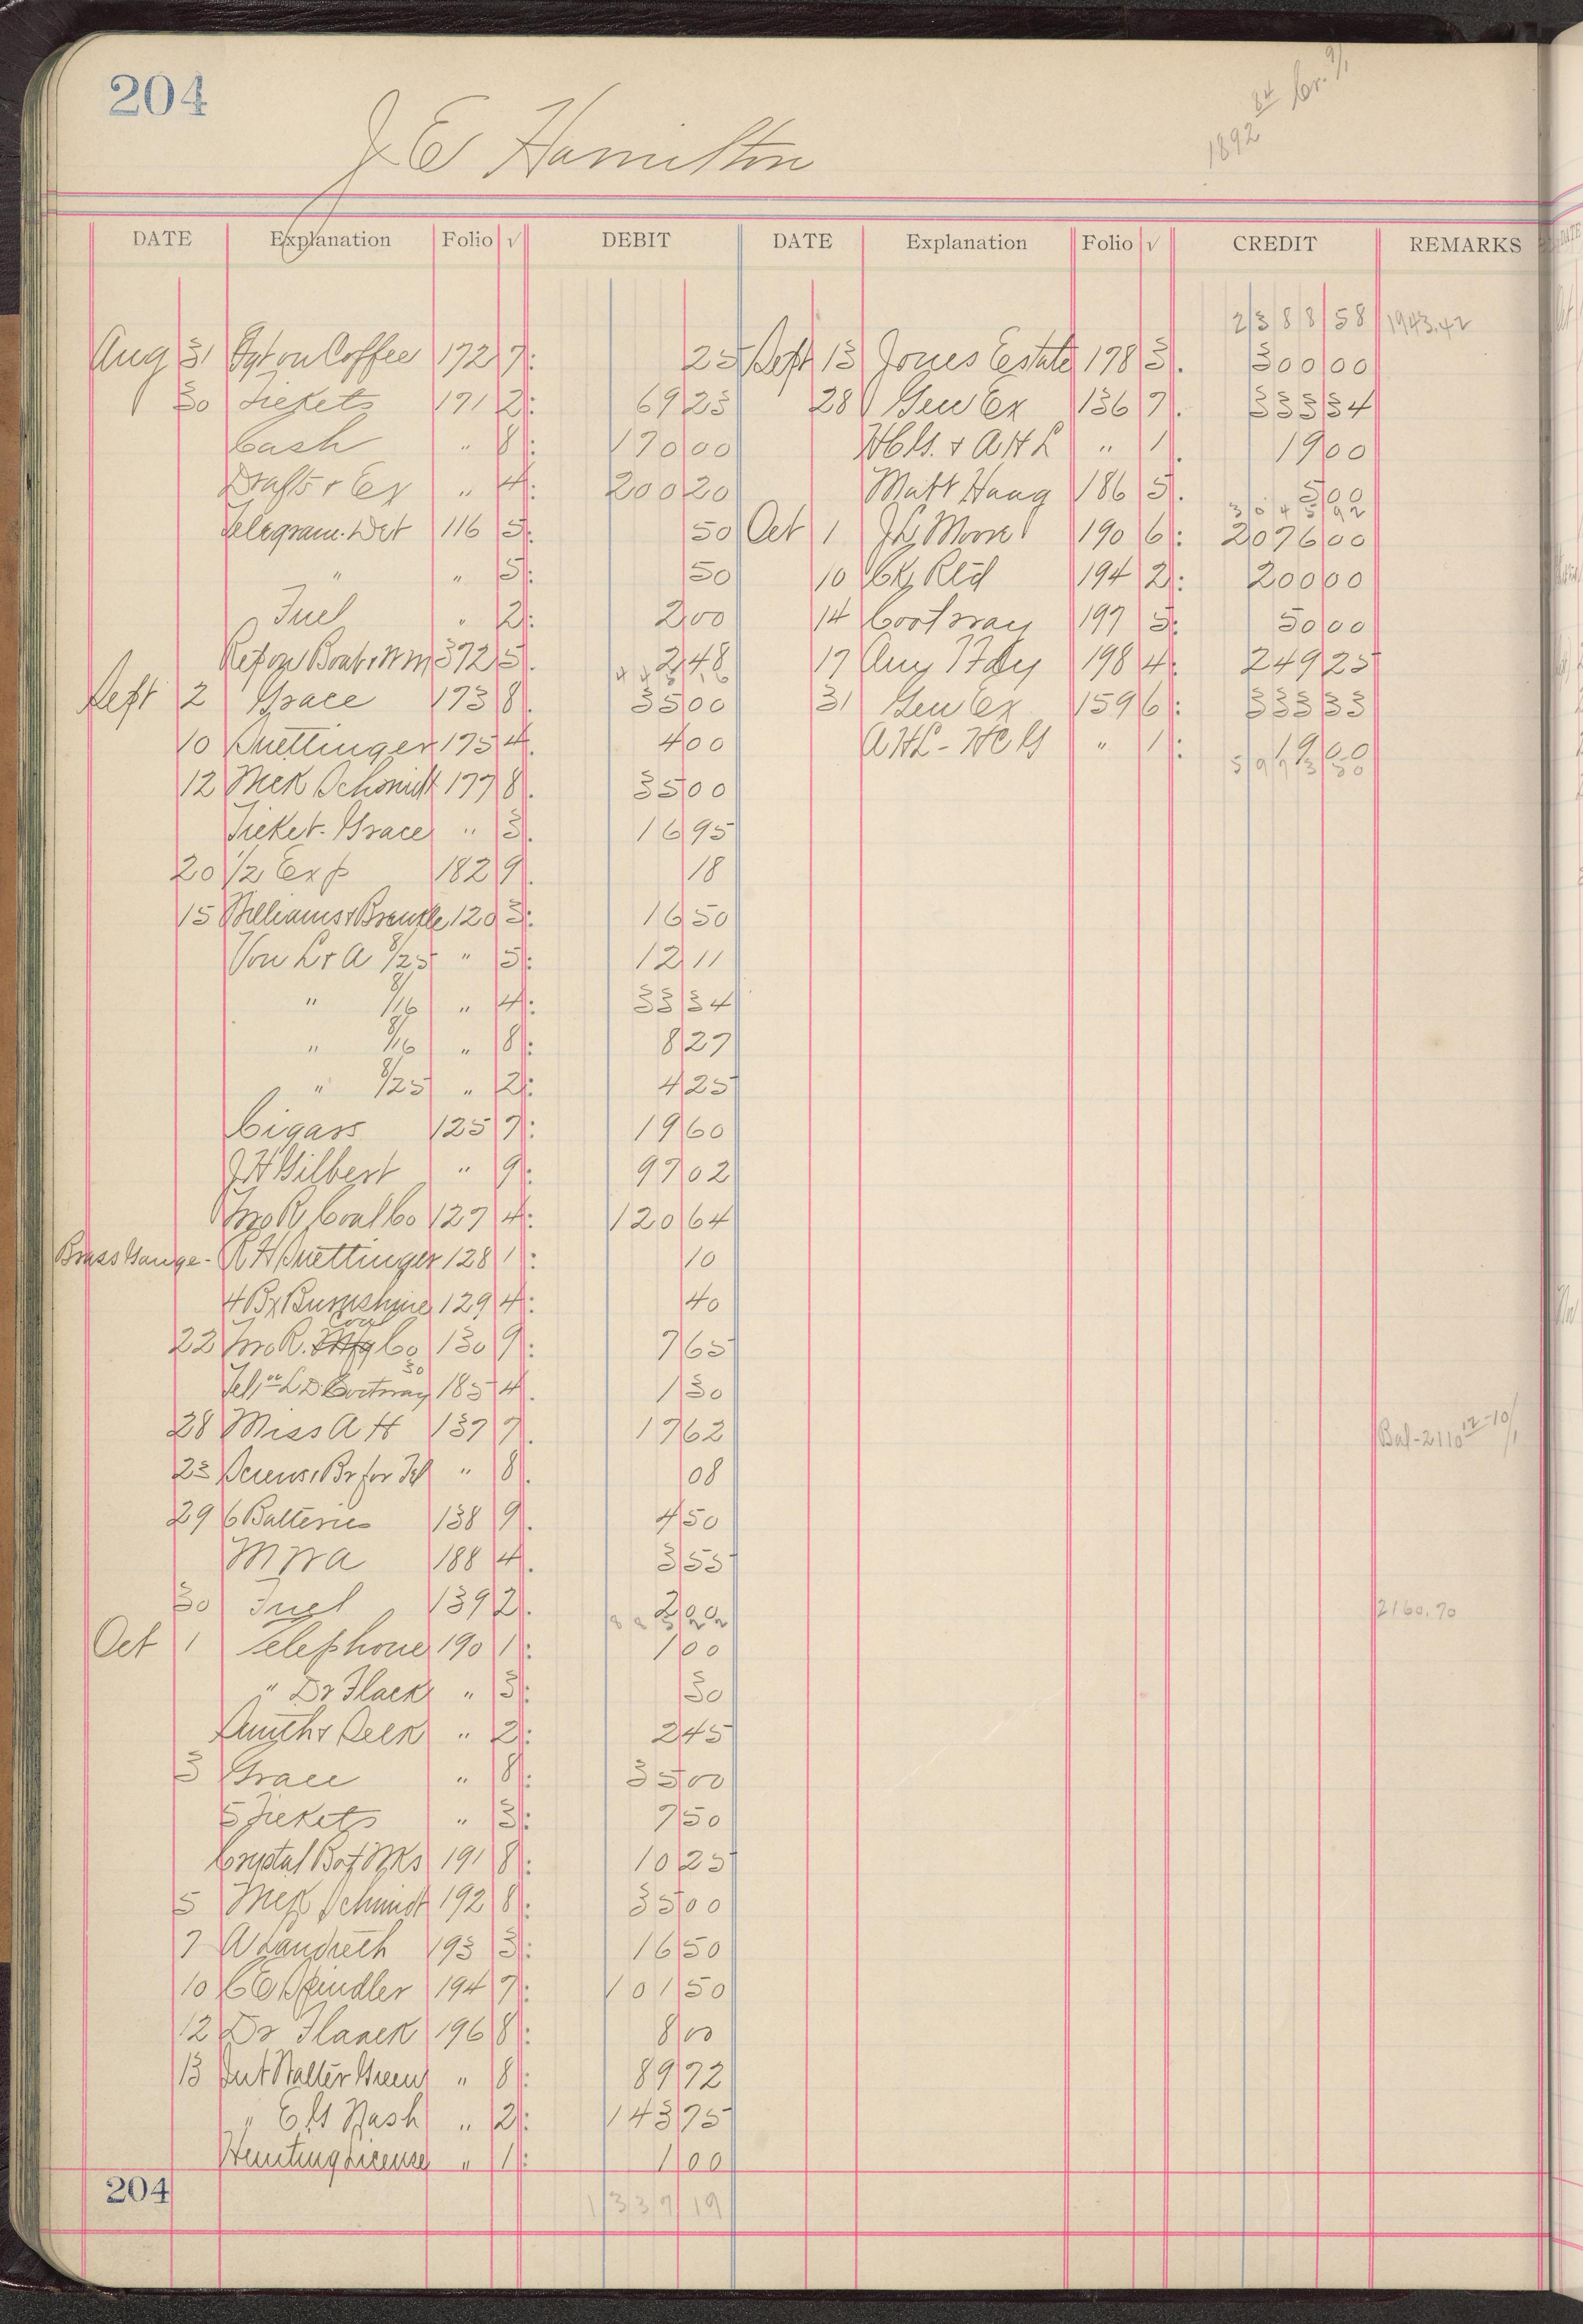 204
J E Hamilton
1892 84 Cr. 9/1
DATE Explanation Folio √ DEBIT DATE Explanation Folio √ CREDIT REMARKS
2388 58 1943.42
Aug 31 Fgt on Coffee 172 7: 25 Sept 13 Jones Estate 178 3. 300 00
30 Tickets 171 2: 69 23 28 Gen Ex 136 7. 333 34
Cash " 8: 170 00 HCG. & AHL " 1. 19 00
Drafts & Ex " 4: 200 20 Matt Haag 186 5. 5 00
3045 92
Telegram. Det 116 5: 50 Oct 1 J L Moore 190 6: 2076 00
" " 5: 50 10 Ck Rtd 194 2: 200 00
Fuel " 2: 2 00 14 Cootsway 197 5: 50 00
Rep on Boat & Wm 372 5. 2 48 17 Aug 198 4: 249 25
445 16
Sept 2 Grace 173 8. 35 00 31 Gen Ex 159 6: 333 33
10 Duettinger 175 4. 4 00 AHL - HCG " 1: 19 00
5973 50
12 Mck Schmidt 177 8. 35 00
Ticket. Grace " 3. 16 95
20 1/2 Exp 182 9. 18
15 Williams & 120 3: 16 50
Von L & A 8/25 " 5: 12 11
" 8/16 " 4: 33 34
" 8/16 " 8: 8 27
" 8/25 " 2: 4 25
Cigars 125 7: 19 60
J H Gilbert " 9: 97 02
Jno R Coal Co 127 4: 120 64
Brass Gauge - R H Duettinger 128 1: 10
4 Bx Burnshine 129 4: 40
22 Jno R. Mfg Coal Co 130 9: 7 65
Tel L D Cootsway 30 185 4. 1 30
28 Miss A H 137 7. 17 62 Bal - 2110 12 - 10/1
23 Screws & Br for Tel " 8. 08
29 6 Batteries 138 9. 4 50
M W A 188 4. 3 55
30 Fuel 139 2. 2 00 2160.70
Oct 1 Telephone 190 1: 1 00
" Dr Flack " 3: 30
Smith & Selk " 2: 2 45
3 Grace " 8: 35 00
5 Tickets " 3: 7 50
Crystal Bot Wks 191 8: 10 25
5 Mck Schmidt 192 8: 35 00
7 A Landreth 193 3: 16 50
10 C E Spindler 194 7: 101 50
12 Dr Flack 196 8: 8 00
13 Int Walter Green " 8: 89 72
" E G Nash " 2: 143 75
Hunting License " 1: 1 00
204
1337 19